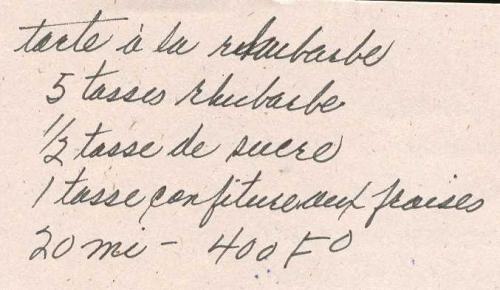 tarte à la rhubarbe
5 tasses rhubarbe
1/2 tasse de sucre
1 tasse confiture aux fraises
20 mi - 400 F°